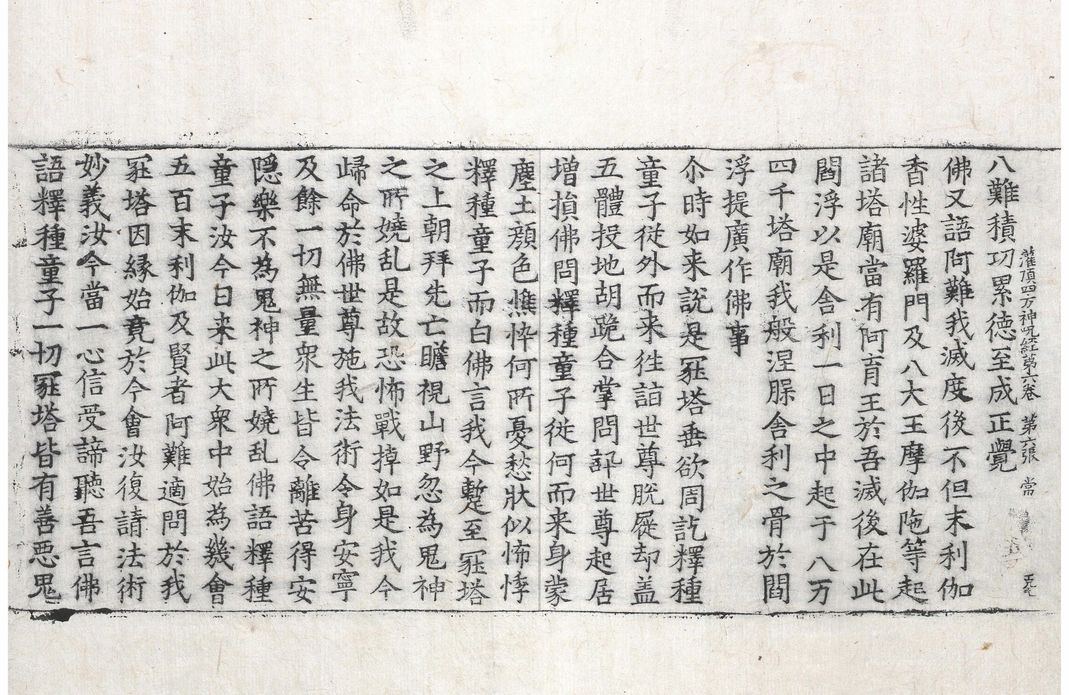 八難積功累德至成正覺
灌頂四方神呪經第六卷 第六張 當
佛又語阿難我滅度後不但末利伽
香性婆羅門及八大王摩伽陁等起
諸塔廟當有阿育王於吾滅後在此
閻浮以是舍利一日之中起于八万
四千塔廟我般涅脲舍利之骨於閻
浮提廣作佛事
尒時如来說是冡塔垂欲周訖釋種
童子從外而来徃詣世尊脫屣却盖
五體投地胡跪合掌問訊世尊起居
増損佛問釋種童子從何而来身蒙
塵土顔色憔悴何所憂愁狀似怖悸
釋種童子而白佛言我今蹔至冡塔
之上朝拜先亡瞻視山野忽為鬼神
之所嬈乱是故恐怖戰掉如是我今
歸命於佛世尊施我法術令身安寧
及餘一切無量衆生皆令離苦得安
隠樂不為鬼神之所嬈乱佛語釋種
童子汝今日来此大衆中始為幾會
五百末利伽及賢者阿難適問於我
冡塔因緣始竟於今會汝復請法術
妙義汝今當一心信受諦聽吾言佛
語釋種童子一切冡塔皆有善惡鬼